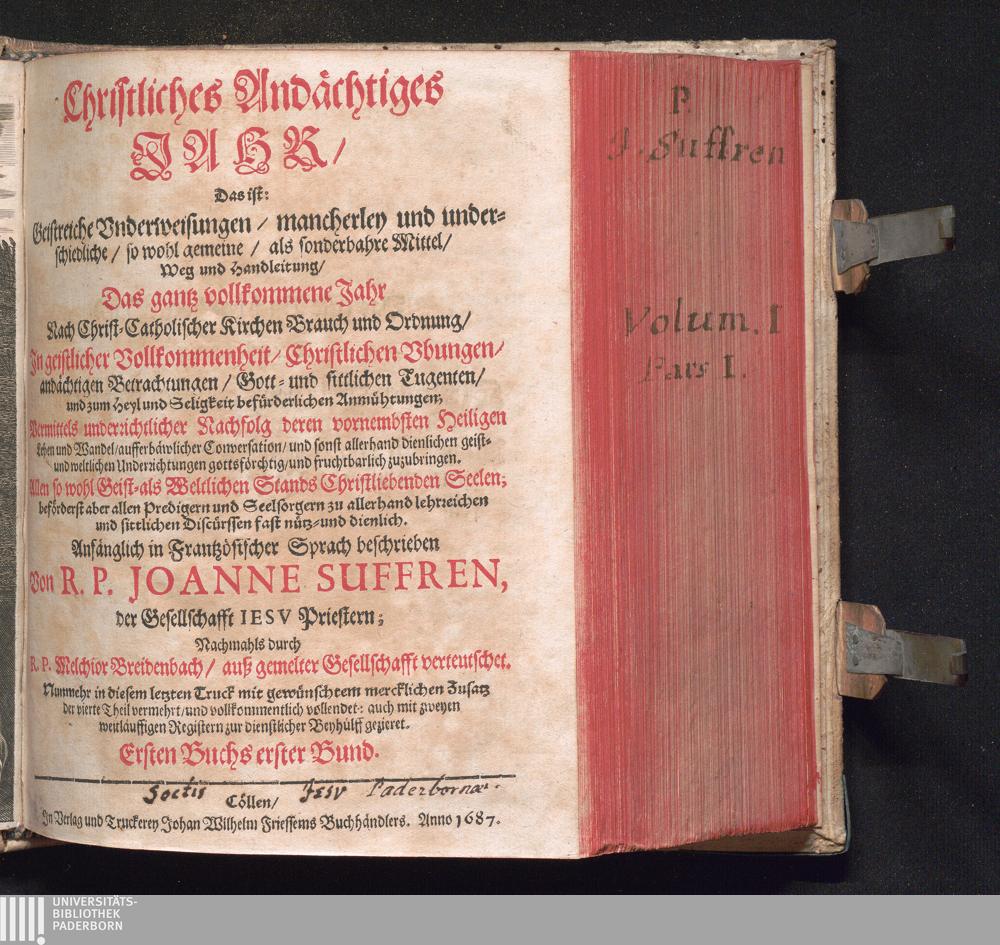 Christliches Andächtiges
JAHR/
Das ist:
Geistreiche Vnderweisungen / mancherley und under-
schiedliche / so wohl gemeine / als sonderbahre Mittel/
Weg und Handleitung/
Das gantz vollkommene Jahr
Nach Christ-Catholischer Kirchen Brauch und Ordnung/
In geistlicher Vollkommenheit/ Christlichen Vbungen/
andächtigen Betrachtungen / Gott- und sittlichen Tugenten/
und zum Heyl und Seligkeit befürderlichen Anmühtungen;
Vermittels underrichtlicher Nachfolg deren vornembsten Heiligen
Leben und Wandel/aufferbäwlicher Conversation/und sonst allerhand dienlichen geist-
und weltlichen Underrichtungen gottsförchtig/und fruchtbarlich zuzubringen.
Allen so wohl Geist-als Weltlichen Stands Christliebenden Seelen;
beförderst aber allen Predigern und Seelsorgern zu allerhand lehrreichen
und sittlichen Discürssen fast nütz-und dienlich.
Anfänglich in Frantzösischer Sprach beschrieben
Von R. P. JOANNE SUFFREN,
der Gesellschafft IESV Priestern;
Nachmahls durch
R. P. Melchior Breidenbach/ auß gemelter Gesellschafft verteutschet.
Nunmehr in diesem letzten Truck mit gewünschtem mercklichen Zusatz
der vierte Theil vermehrt/und vollkommentlich vollendet: auch mit zweyen
weitläuffigen Registern zur dienstlicher Beyhülff gezieret.
Ersten Buchs erster Bund.
Soctis Jesv Paderbornæ.
Cöllen/
In Verlag und Truckerey Johan Wilhelm Friessems Buchhändlers. Anno 1687.
P.
J. Suffren
Volum. I
Pars I.
UNIVERSITÄTS-
BIBLIOTHEK
PADERBORN